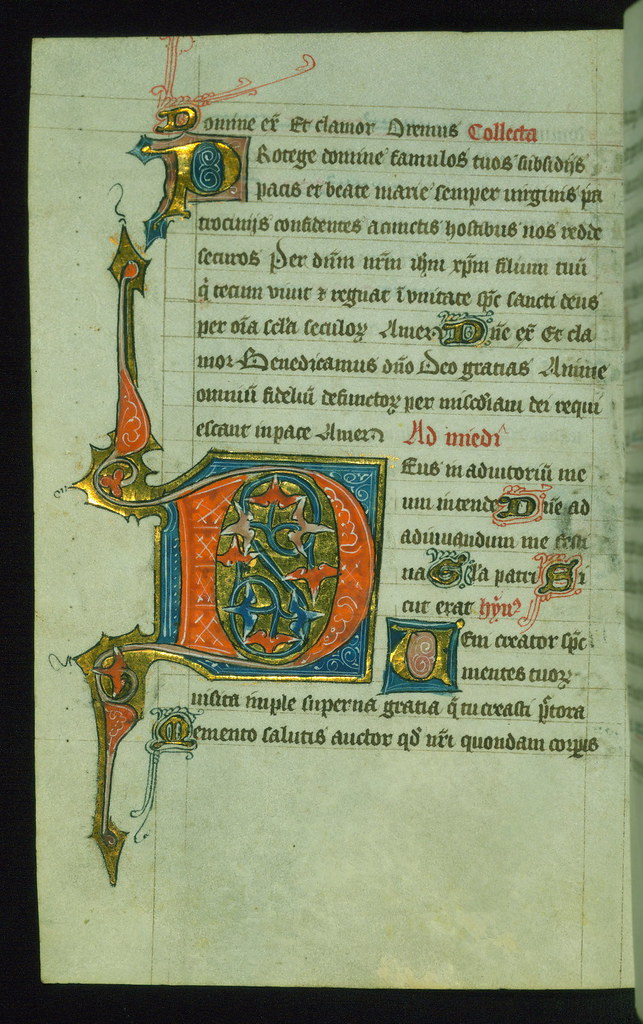 Domine ex Et clamor Oremus Collecta
Protege domine famulos tuos subsidijs
pacis et beate marie semper uirginis pa
trocinijs confidentes a cunctis hostibus nos redde
securos Per dnm nrm ihm xpm filium tuū
q̄ tecum viuit ⁊ regnat ī vnitate spc sancti deus
per oīa scl̄a seculoꝝ Amen Dn̄e ex Et cla
mor Benedicamus dn̄o Deo gratias Anime
omniū fideliū defunctoꝝ per mis̄cdiam dei requi
escant in pace Amen Ad medi
Deus in adiutoriū me
um intende Dn̄e ad
adiuuandum me festi
na Gl̄a patri Si
cut erat hȳn
Ueni creator spc
mentes tuoꝝ
uisita imple superna gratia q̄ tu creasti pc̄tora
Memento salutis auctor qd̄ nr̄i quondam corpis